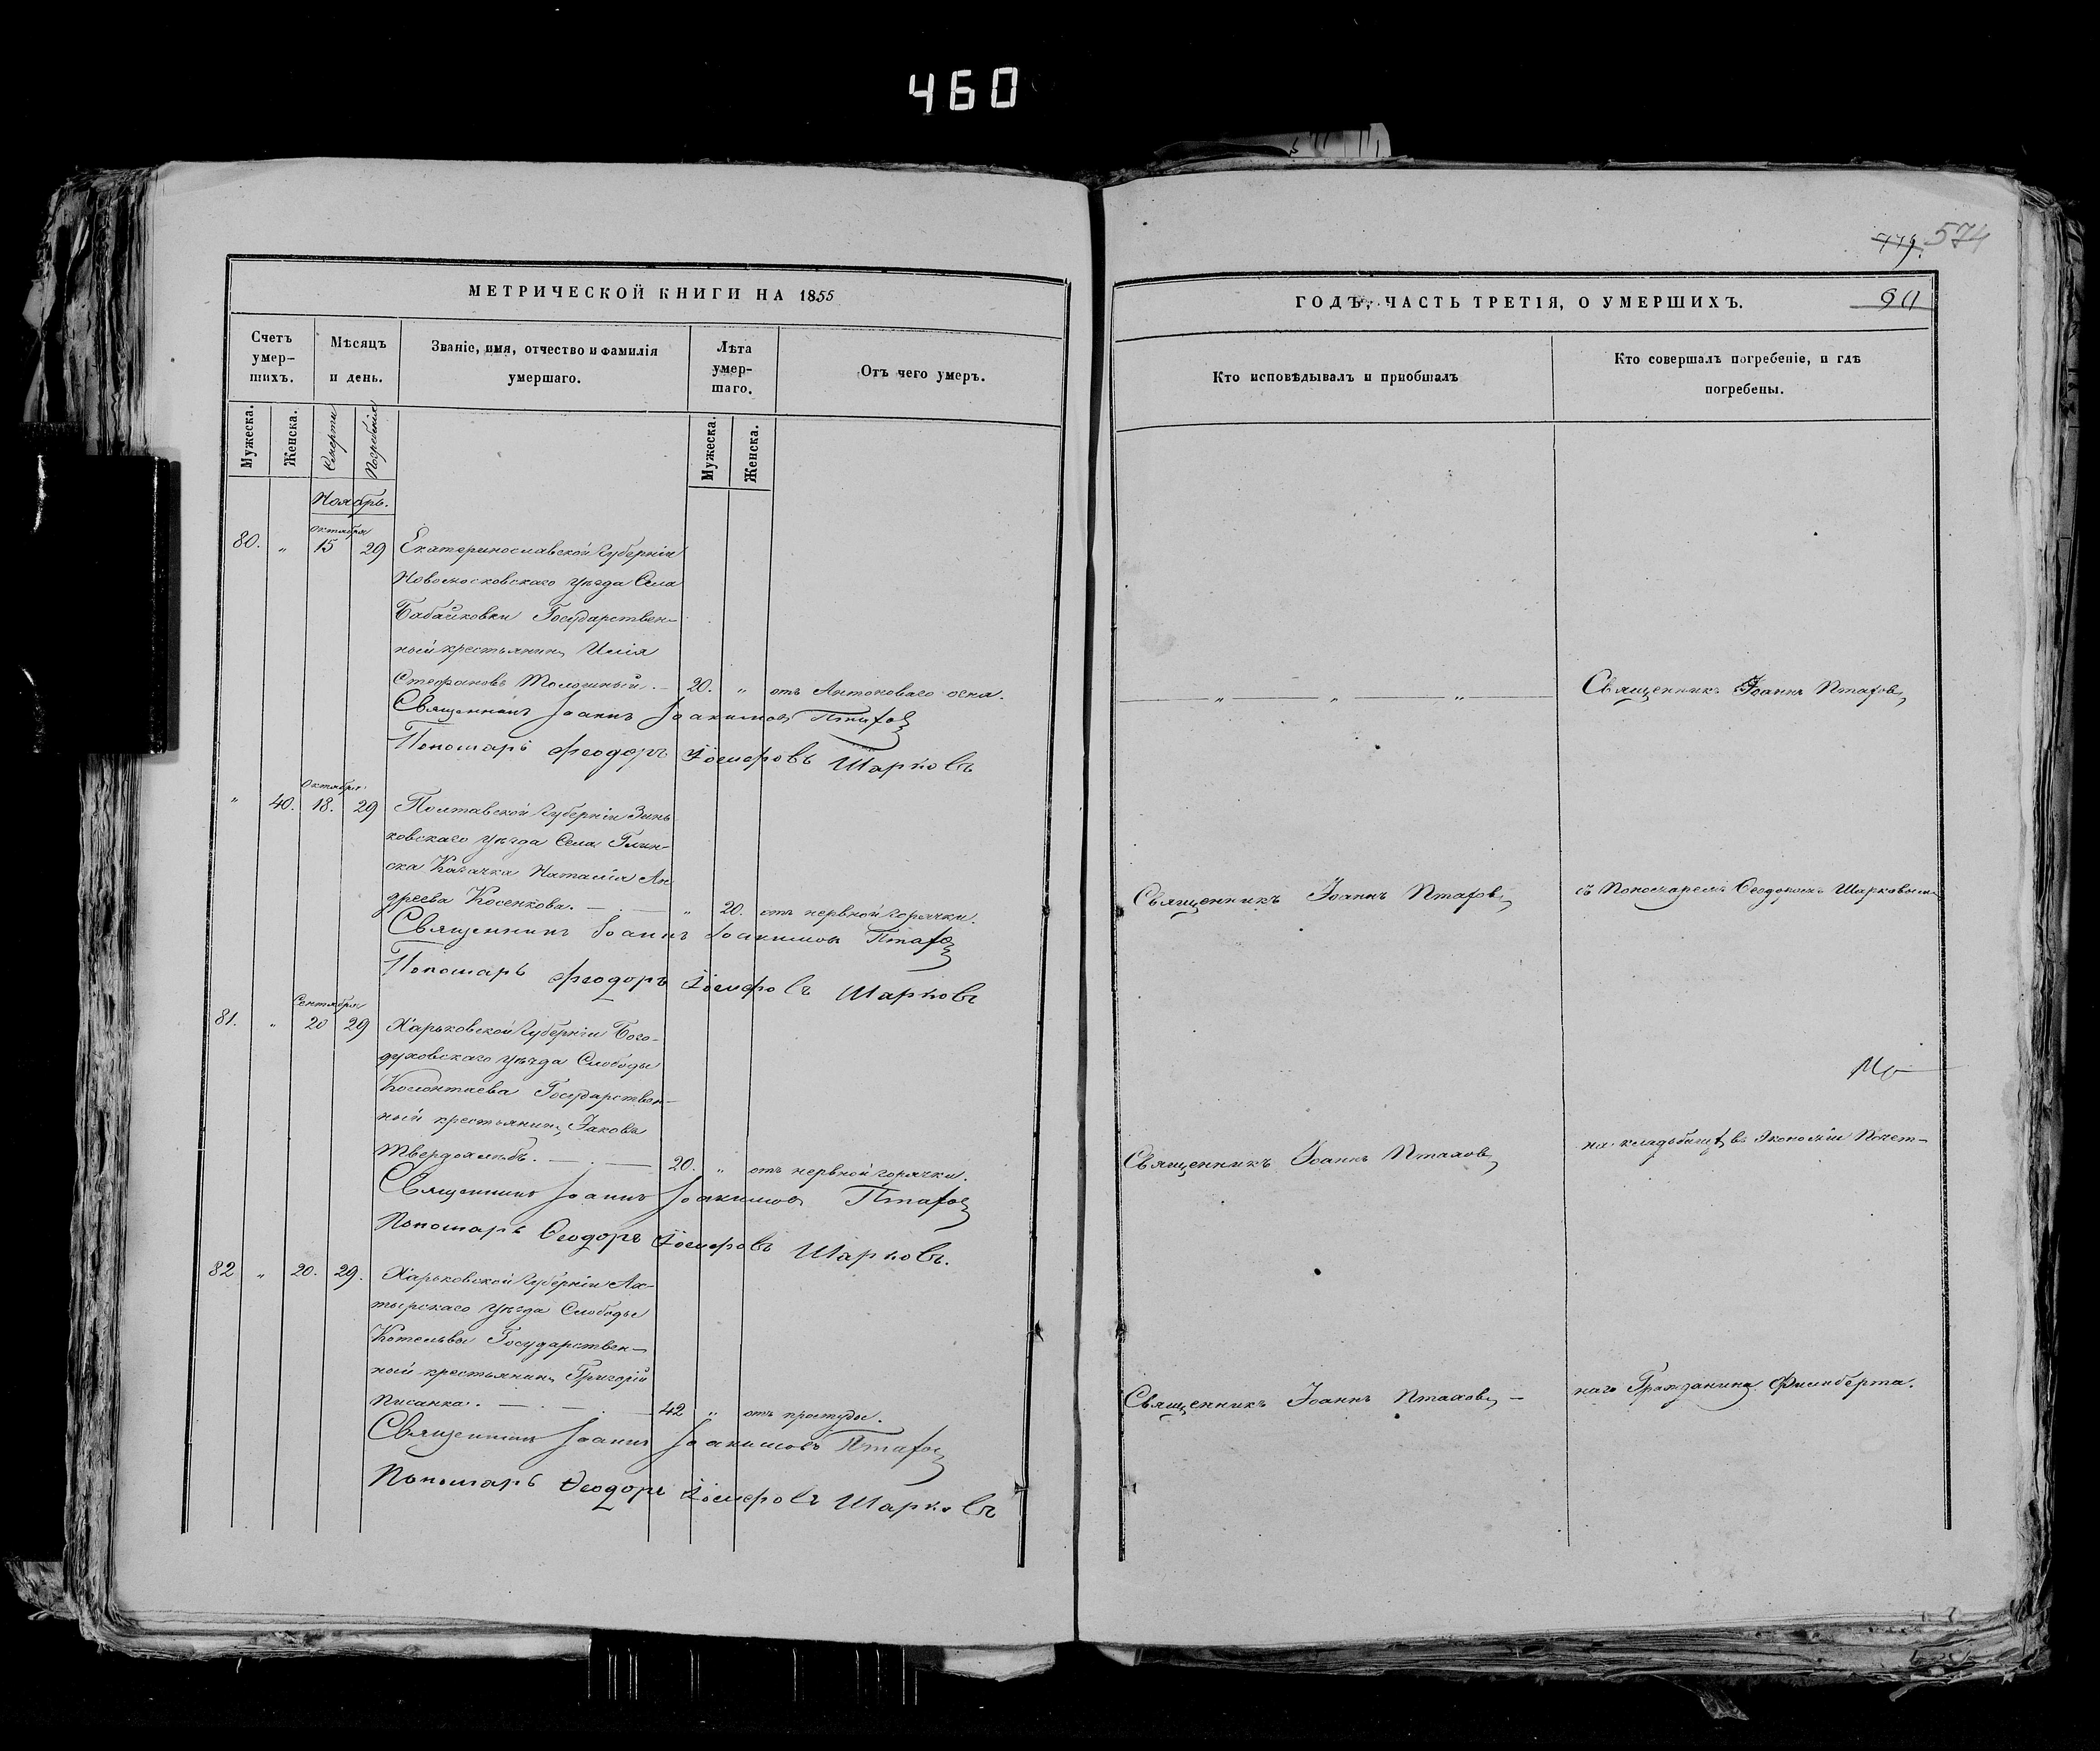 460
779. 574
МЕТРИЧЕСКОЙ КНИГИ НА 1855
ГОДЪ, ЧАСТЬ ТРЕТІЯ, О УМЕРШИХЪ.
Счетъ умер-шихъ.
Мѣсяцъ и день.
Званіе, имя, отчество и фамилія умершаго.
Лѣта умер-шаго.
Отъ чего умеръ.
Кто исповѣдывалъ и пріобщалъ
Кто совершалъ погребеніе, и гдѣ погребены.
Мужеска. Женска. Смерти Погребенія
Мужеска. Женска.
Ноябрь.
Октября
80. „ 15 29 Екатеринославской Губерніи
Новомосковскаго уѣзда Села
Бабайковки Государствен-
ный крестьянинъ Илія
Стефановъ Молочный. — 20. „ отъ Антоноваго огня.
— „ — „ — „ —
Священникъ Іоаннъ Птаховъ
Священникъ Іоаннъ Іоакимовъ Птаховъ
Пономарь Феодоръ Іосифовъ Шарковъ
Октября
„ 40. 18. 29 Полтавской Губерніи Зинь
ковскаго уѣзда Села Глин-
ска Козачка Наталія Ан
дреева Косенкова. — . — „ 20. отъ нервной горячки.
Священникъ Іоаннъ Птаховъ
съ Пономаремъ Ѳеодоромъ Шарковымъ
Священникъ Іоаннъ Іоакимовъ Птаховъ
Пономарь Феодоръ Іосифовъ Шарковъ
Сентября
81. „ 20 29 Харьковской Губерніи Бого-
духовскаго уѣзда Слободы
Колонтаева Государствен-
ный крестьянинъ Іаковъ
Твердохлѣбъ. — . — 20. „ отъ нервной горячки.
Священникъ Іоаннъ Птаховъ
на кладбищѣ въ Экономіи Почет-
Священникъ Іоаннъ Іоакимовъ Птаховъ
Пономарь Ѳеодоръ Іосифовъ Шарковъ.
82 „ 20. 29. Харьковской Губерніи Ах-
тырскаго уѣзда Слободы
Котельвы Государствен-
ный крестьянинъ Григорій
Писанка. — . — . — 42 „ отъ простуды.
Священникъ Іоаннъ Птаховъ —
наго Гражданина Филиберта.
Священникъ Іоаннъ Іоакимовъ Птаховъ
Пономарь Ѳеодоръ Іосифовъ Шарковъ